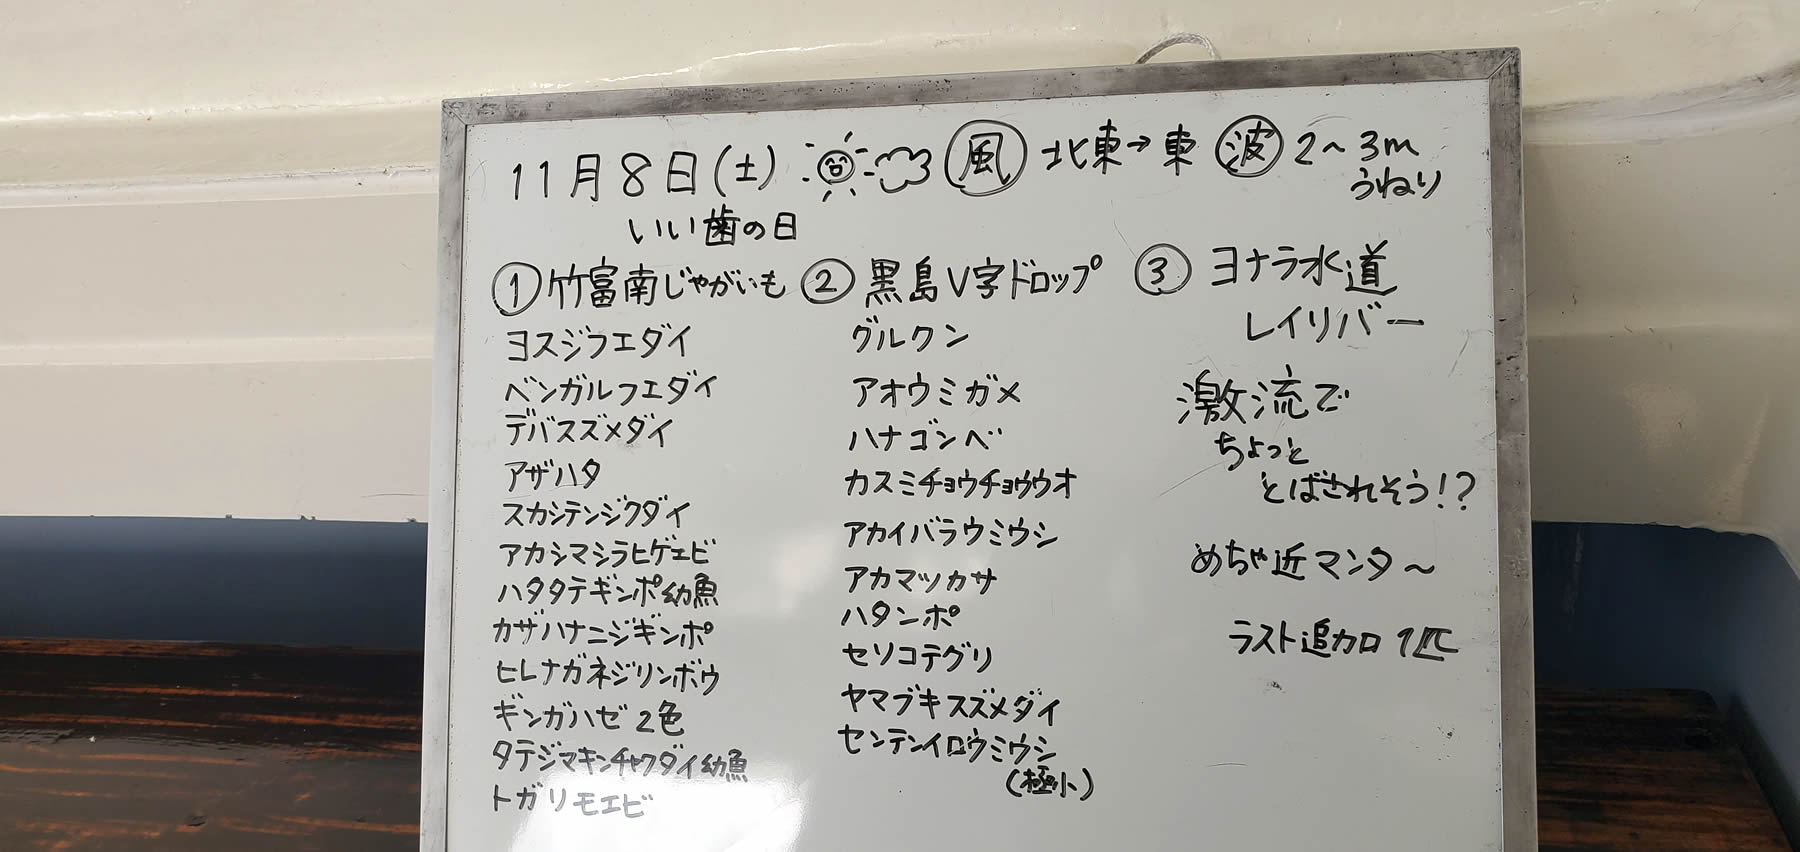 11月8日(土) 風 北東→東 波 2～3m
うねり
いい歯の日
①竹富南じゃがいも
ヨスジフエダイ
ベンガルフエダイ
デバスズメダイ
アザハタ
スカシテンジクダイ
アカシマシラヒゲエビ
ハタタテギンポ幼魚
カザハナニジギンポ
ヒレナガネジリンボウ
ギンガハゼ2色
タテジマキンチャクダイ幼魚
トガリモエビ
②黒島V字ドロップ
グルクン
アオウミガメ
ハナゴンベ
カスミチョウチョウウオ
アカイバラウミウシ
アカマツカサ
ハタンポ
セソコテグリ
ヤマブキスズメダイ
センテンイロウミウシ
(極小)
③ヨナラ水道
レイリバー
激流で
ちょっと
とばされそう!?
めちゃ近マンタ～
ラスト追加1匹